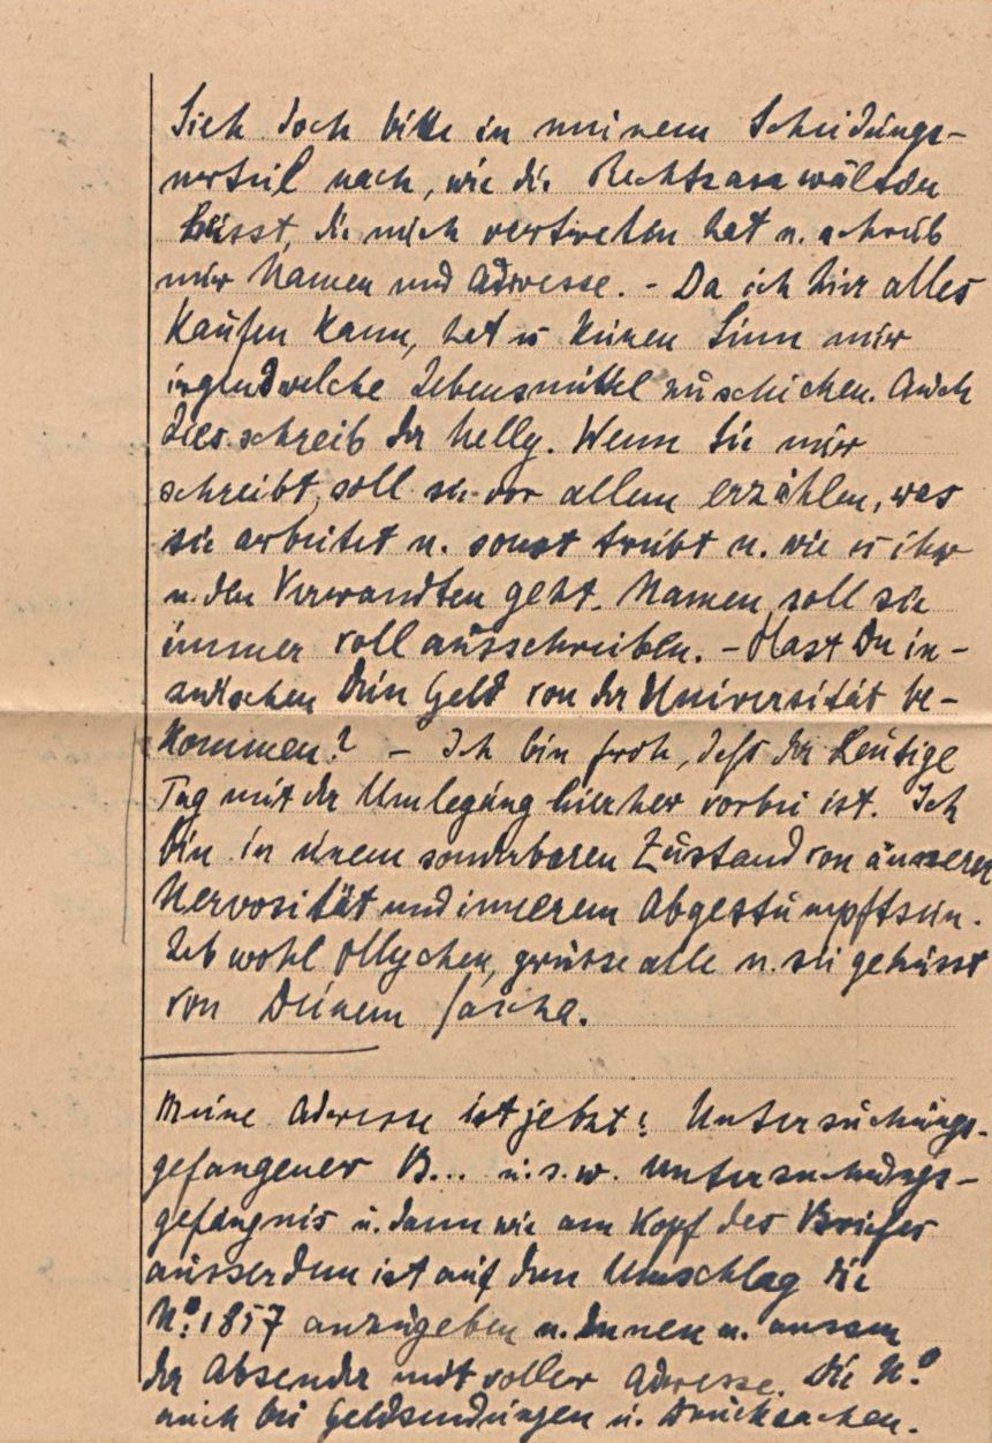 Sieh doch bitte in meinem Scheidungs-
urteil nach, wie die Rechtsanwältin
heisst, die mich vertreten hat u. schreib
mir Namen und Adresse. - Da ich hier alles
kaufen kann, hat es keinen Sinn mir
irgendwelche Lebensmittel zu schicken. Auch
dies schreib der Nelly. Wenn sie mir
schreibt, soll sie vor allem erzählen, was
sie arbeitet u. sonst treibt u. wie es ihr
u. den Verwandten geht. Namen soll sie
immer voll ausschreiben. - Hast Du in-
zwischen Dein Geld von der Universität be-
kommen? - Ich bin froh, dass der heutige
Tag mit der Umlegung hierher vorbei ist. Ich
bin in einem sonderbaren Zustand von äusserer
Nervosität und innerem Abgestumpftsein.
Leb wohl Ollychen, grüsse alle u. sei geküsst
von Deinem Sascha.
Meine Adresse ist jetzt: Untersuchungs-
gefangener B... u.s.w. Untersuchungs-
gefängnis u. dann wie am Kopf des Briefes
ausserdem ist auf dem Umschlag die
No. 1857 anzugeben u. innen u. aussen
der Absender mit voller Adresse. Die No.
auch bei Geldsendungen u. Drucksachen.